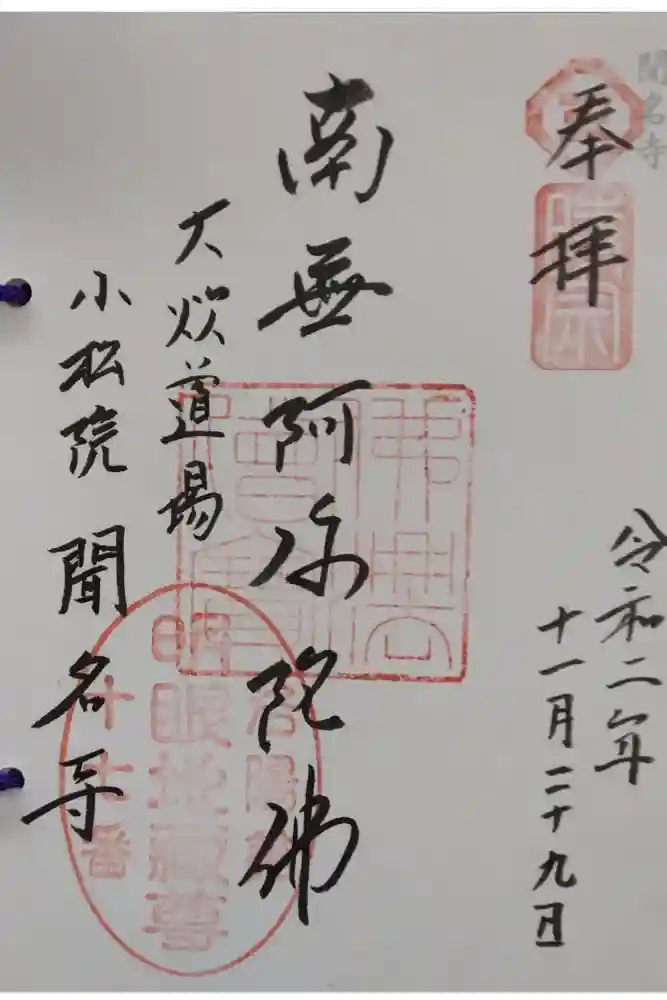 聞名寺
奉拝
令和二年
十一月二十九日
南無阿弥陀佛
大炊道場
小松院 聞名寺
洛陽
明眼地蔵尊
十七番